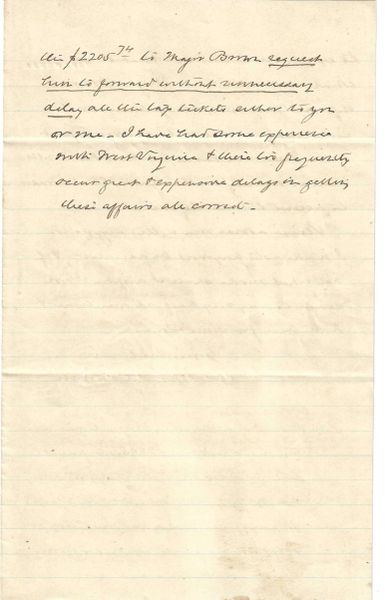 this $2205 74 to Major Brown request
him to forward without unnecessary
delay all the tax tickets either to you
or me – I have had some experience
with West Virginia & there too frequently
occur great & expensive delays in getting
these affairs all correct –